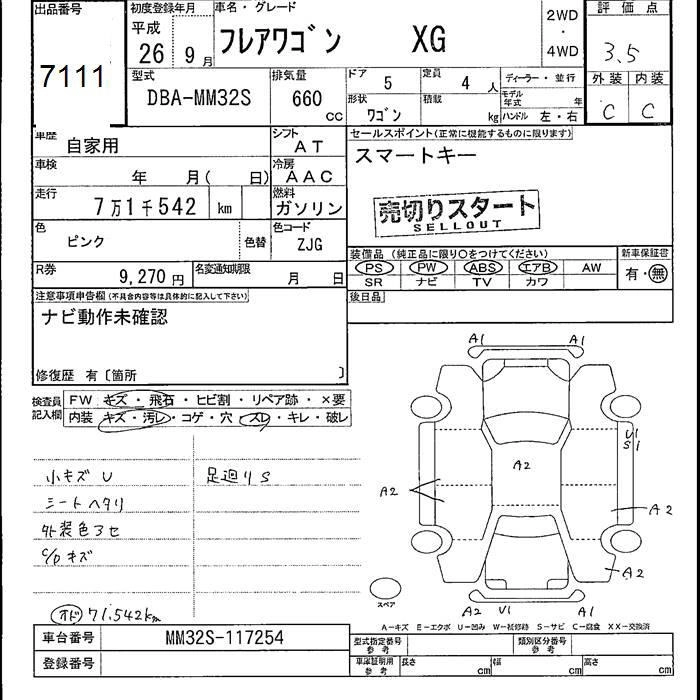 出品番号
7111
初度登録年月
平成
26 9 月
車名・グレード
フレアワゴン XG
2WD
・
4WD
評価点
3.5
外装 内装
C C
型式
DBA-MM32S
排気量
660 cc
ドア 5
定員 4 人
形状 ワゴン
積載 kg
ディーラー・並行
モデル年式 年
ハンドル 左・右
車歴 自家用
シフト AT
車検 年 月( 日)
冷房 AAC
走行 7万1千542 km
燃料 ガソリン
色 ピンク
色替
色コード ZJG
R券 9,270 円
名変通知期限 月 日
セールスポイント(正常に機能するものに限ります)
スマートキー
売切りスタート
SELLOUT
装備品 (純正品に限り○をつけてください)
PS PW ABS エアB AW
SR ナビ TV カワ
新車保証書
有・無
後日品
注意事項申告欄(不具合内容等は具体的に記入して下さい)
ナビ動作未確認
修復歴 有〔箇所 〕
検査員
記入欄
FW キズ・飛石・ヒビ割・リペア跡・×要
内装 キズ・汚レ・コゲ・穴・スレ・キレ・破レ
小キズ U
シートヘタリ
外装色アセ
C/P キズ
足廻りS
オド 71.542km
A1 A1
U1
S1
A2
A2
A2
A2
A2 U1 A1
スペア
A-キズ E-エクボ U-凹み W-補修跡 S-サビ C-腐食 XX-交換済
車台番号 MM32S-117254
登録番号
型式指定番号
参考
類別区分番号
参考
車庫証明用
参考
長さ cm
幅 cm
高さ cm